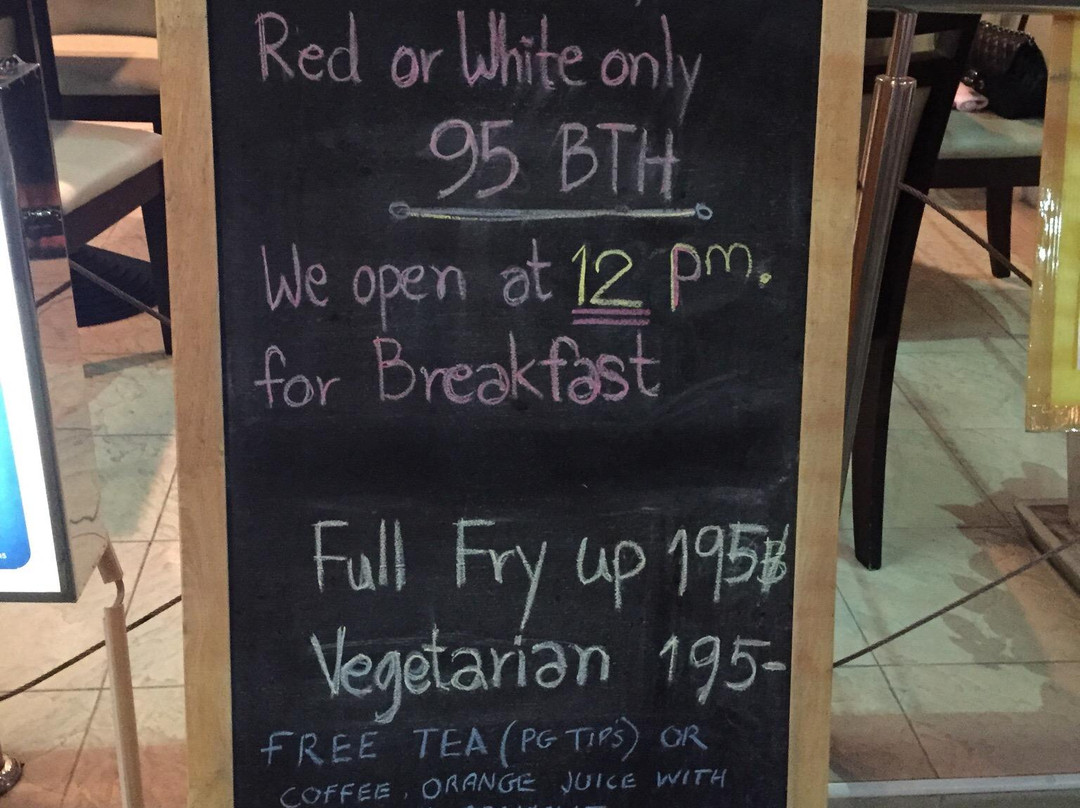 Red or White only
95 BTH
We open at 12 pm.
for Breakfast
Full Fry up 195฿
Vegetarian 195-
FREE TEA (PG TIPS) OR
COFFEE, ORANGE JUICE WITH